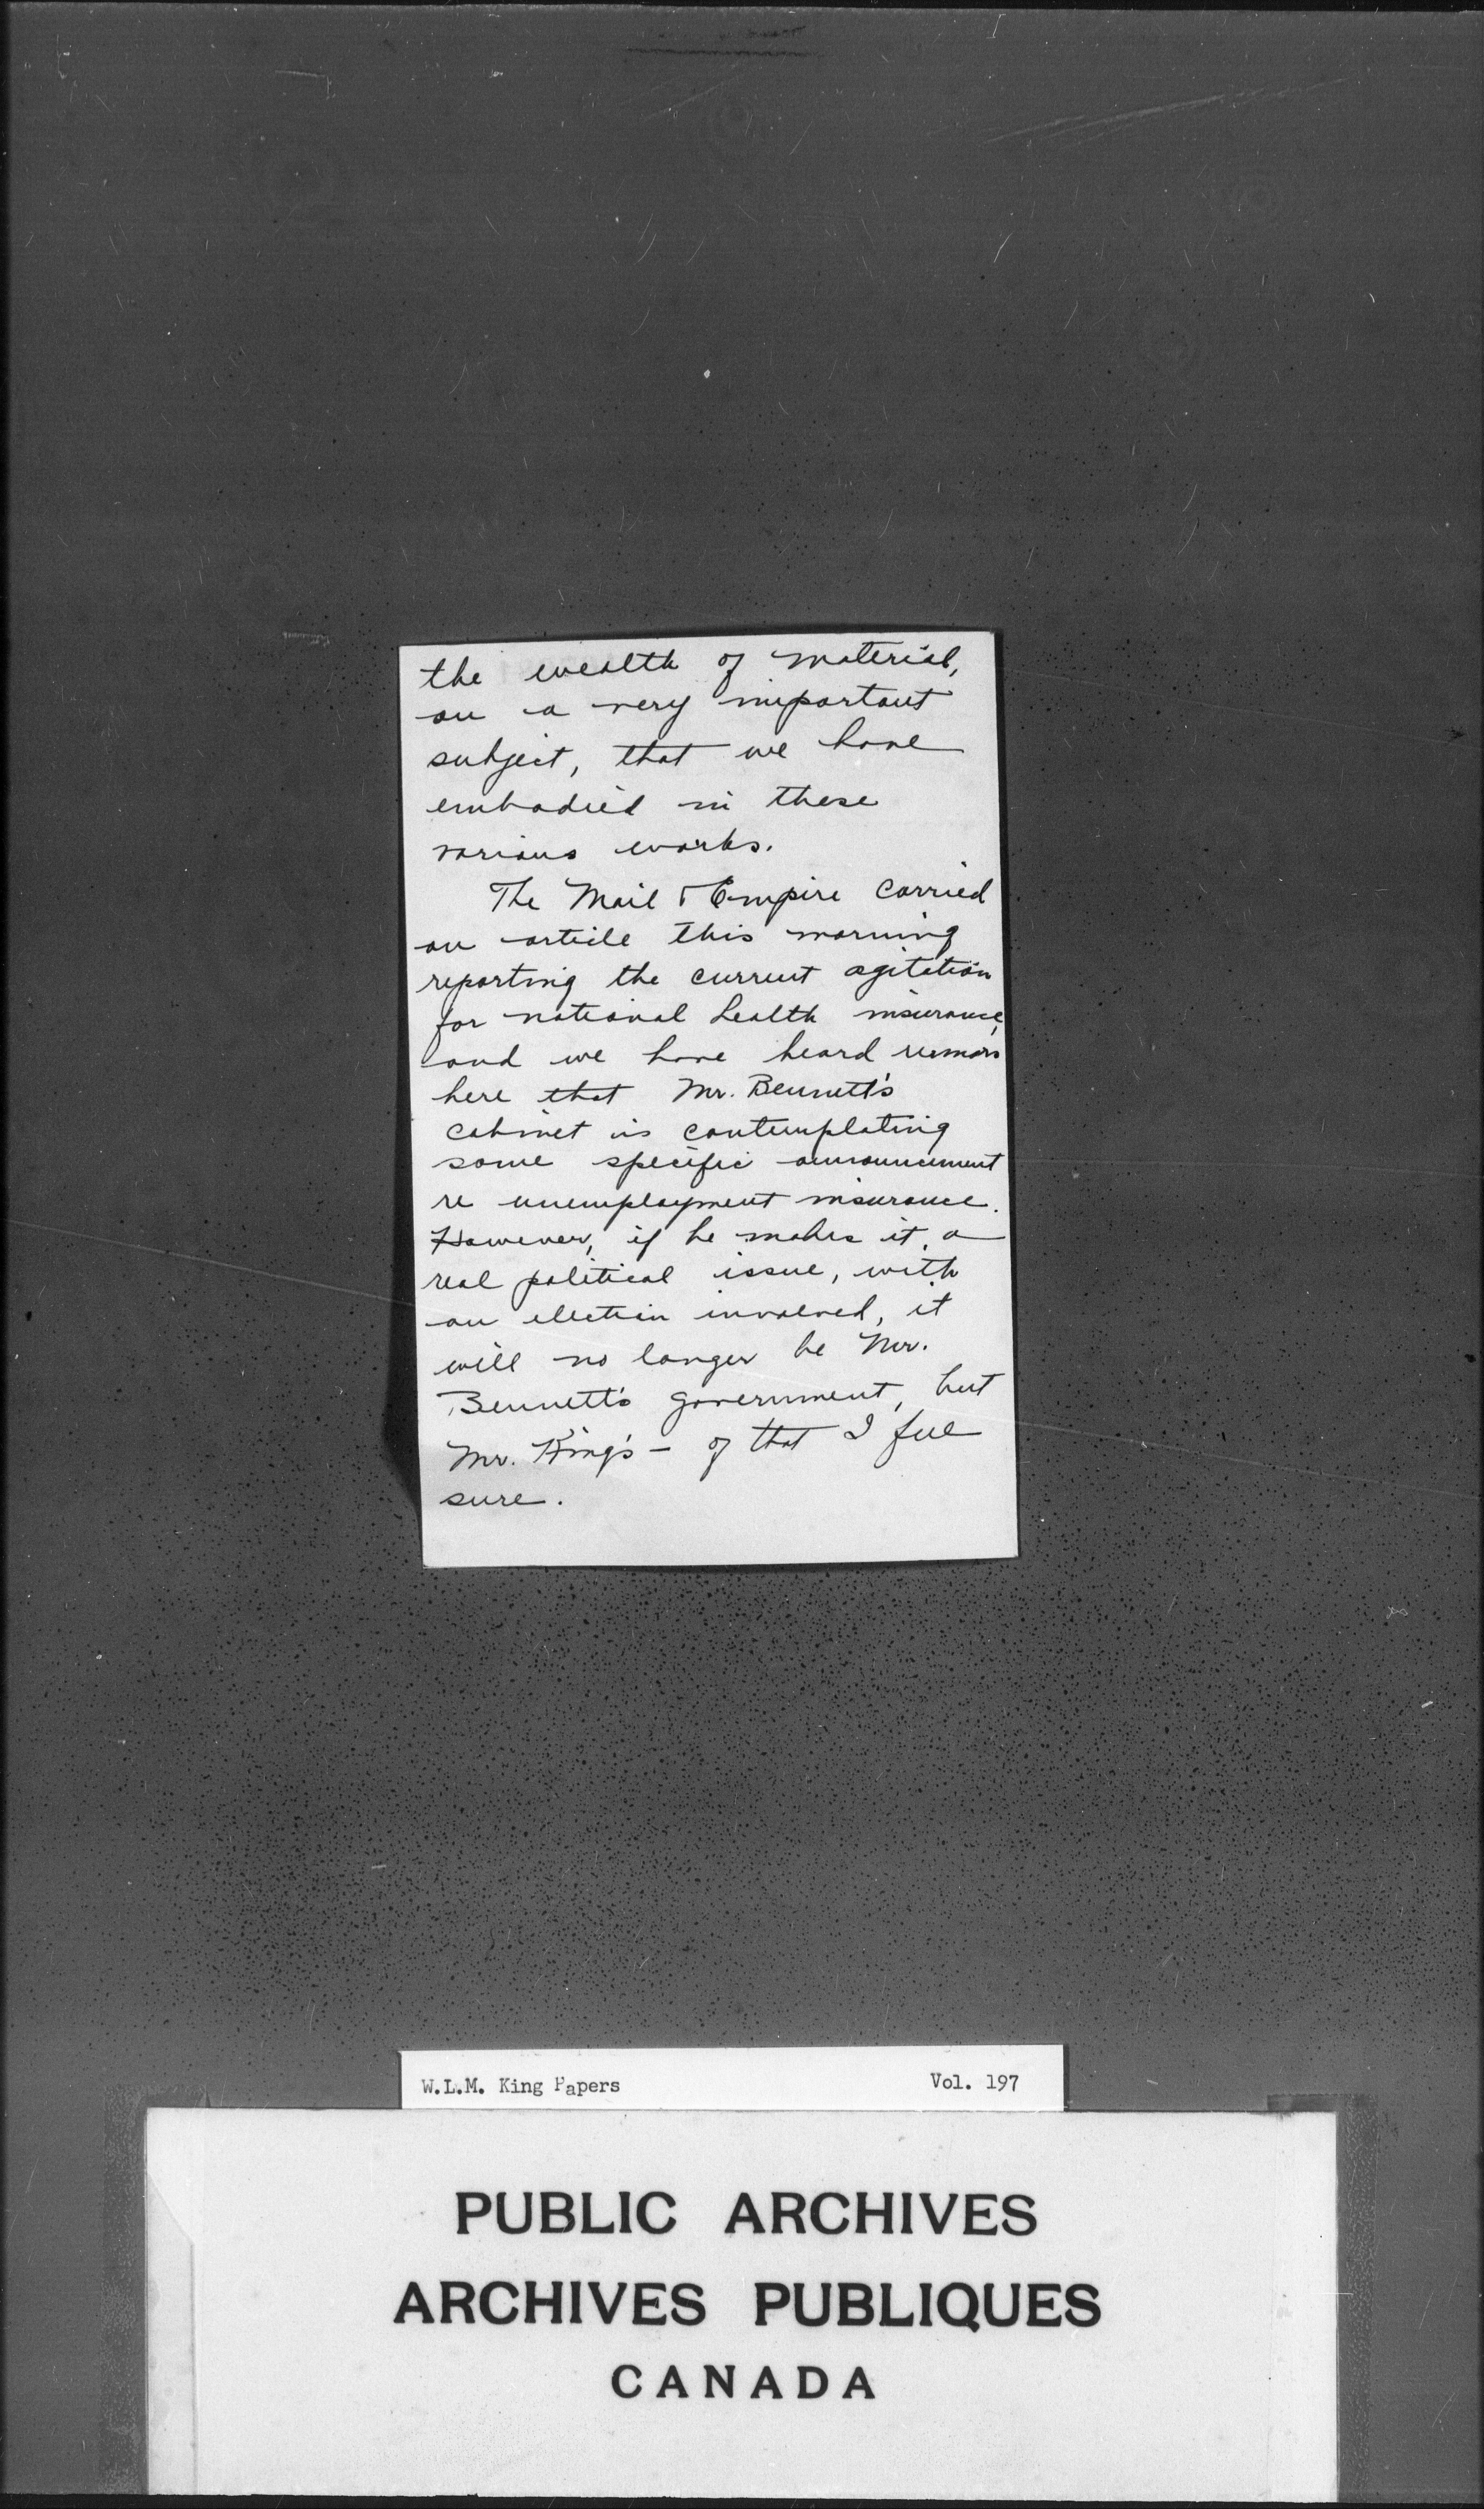 the wealth of material,
on a very important
subject, that we have
embodied in these
various works.
The Mail & Empire carried
an article this morning
reporting the current agitation
for national health insurance,
and we have heard rumors
here that Mr. Bennett's
cabinet is contemplating
some specific announcement
re unemployment insurance.
However, if he makes it a
real political issue, with
an election involved, it
will no longer be Mr.
Bennett's government, but
Mr. King's - of that I feel
sure.
W.L.M. King Papers Vol. 197
PUBLIC ARCHIVES
ARCHIVES PUBLIQUES
CANADA